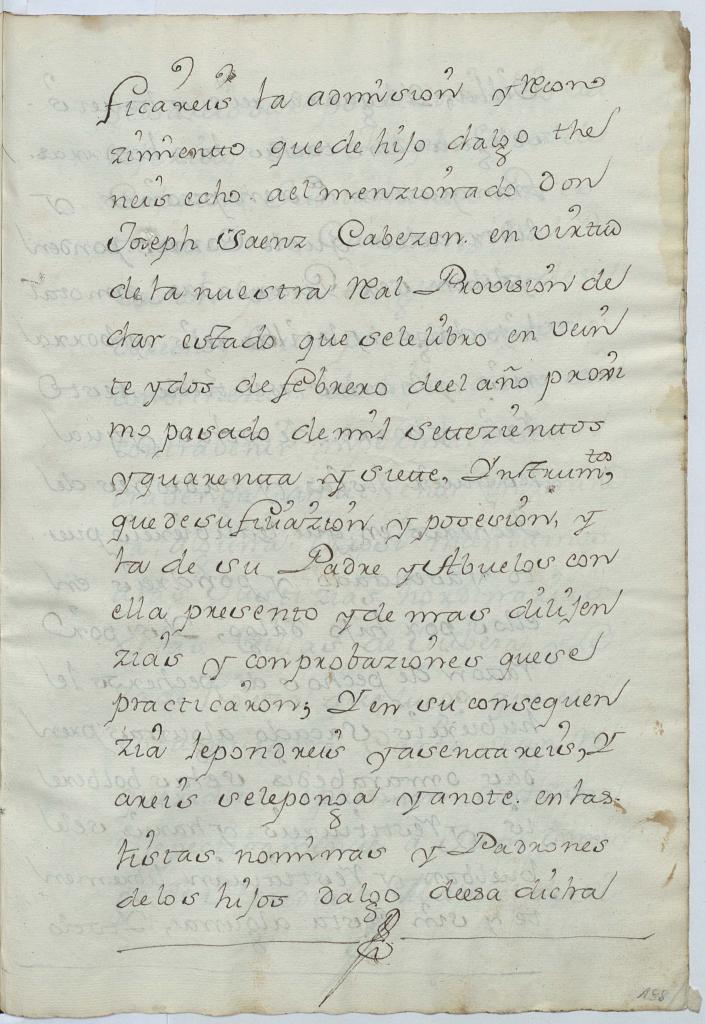 ficareis la admision y Recono
zimientto que de hijo dalgo the
neis echo ael menzionado Don
Joseph Saenz Cabezon. en virtud
de la nuestra Real Provision de
dar estado que se le libro en vein
te y dos de febrero de el año proxi
mo pasado de mil settezienttos
y quarentta y siette, Ynstrumtos,
que de su filiazion y posesion, y
la de su Padre y Abuelos con
ella presento y demas dilijen
zias y conprobaziones que se
practicaron; Y en su consequen
zia le pondreis y asenttareis, Y
areis se le ponga y anote. en las
listas nominas y Padrones
de los hijos dalgo de esa dicha
198